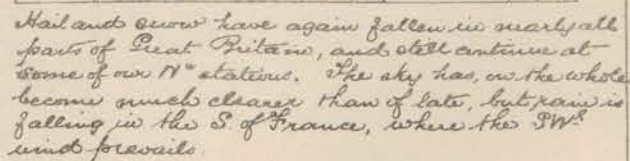 Hail and snow have again fallen in nearly all
parts of Great Britain, and still continue at
some of our Nn stations. The sky has, on the whole
become much clearer than of late, but rain is
falling in the S. of France, where the SWly
wind prevails.